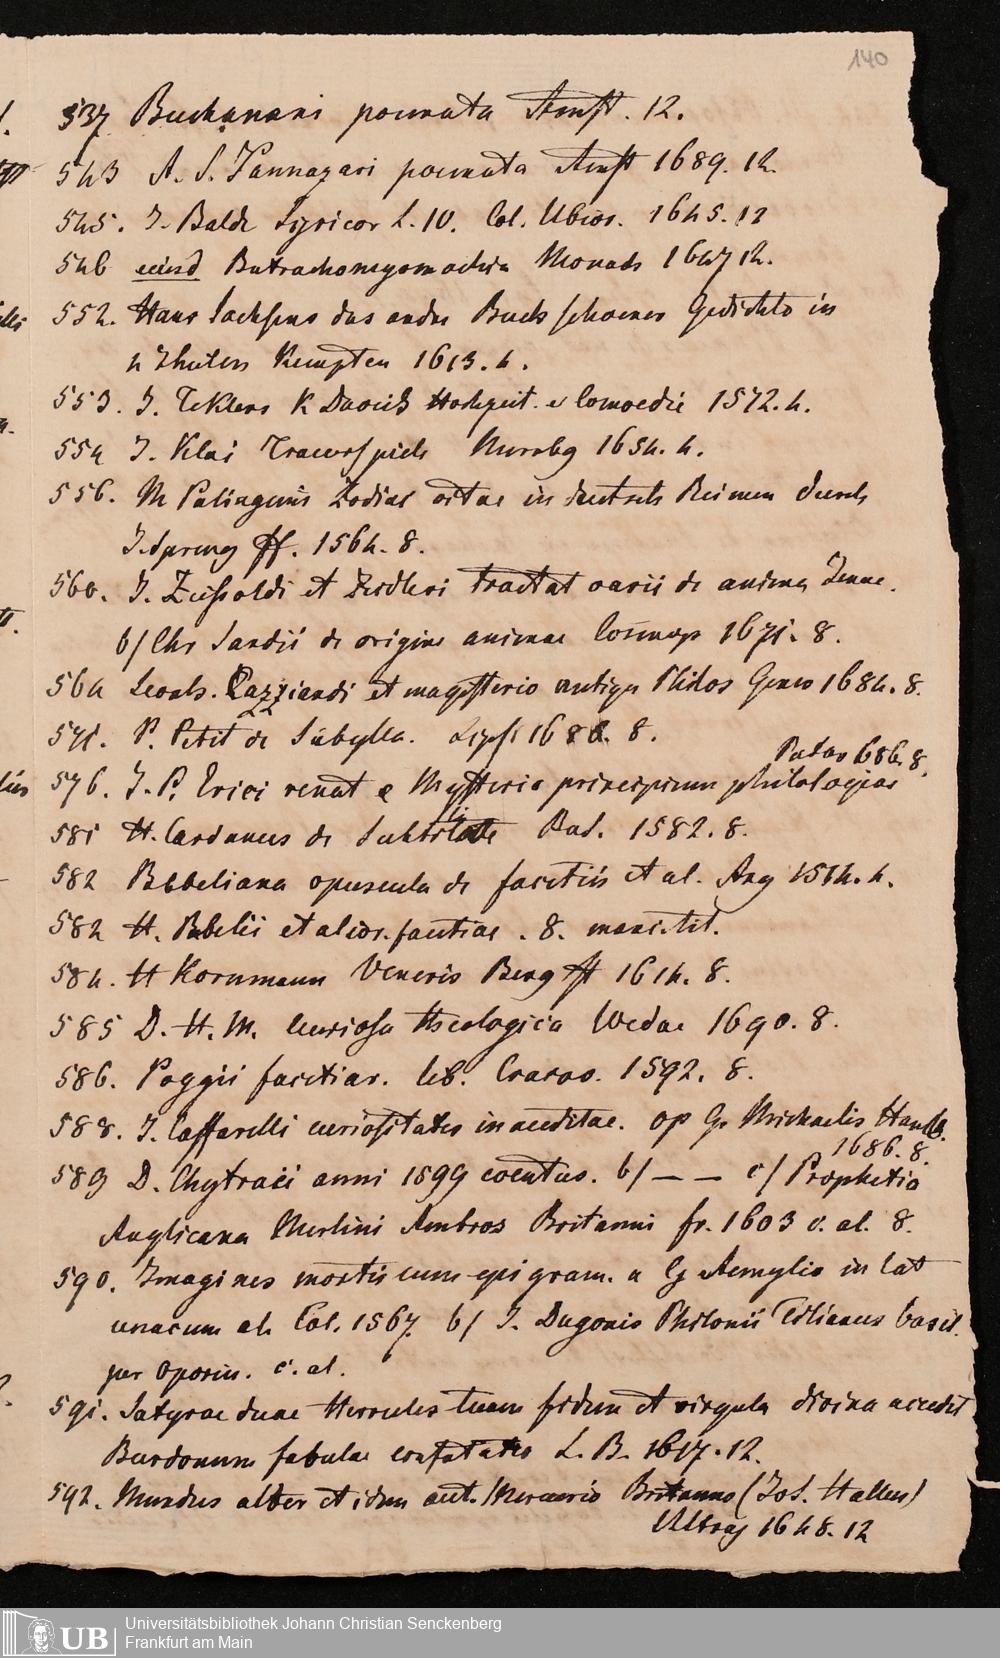 140
537 Buchanani poemata Amst. 12.
543 A. S. Sannazari poemata Amst 1689. 12.
545. J. Balde Lyricor L. IV. Col. Ubior. 1645. 12
546 eiusd Batrachomyomachia Monach 1647 12.
552. Hans Sachsens das ander Buch schoener Gedichte in
4 Theilen Kempten 1613. 4.
553. J. Teklers K Davids Hochzeit e Comoedie 1572. 4.
554 J. Klai Trauerspiele Nurnbg 1654. 4.
556. M Palingenii Zodiac vitae in deutsch Reimen durch
J. Spreng Ff. 1564. 8.
560. J. Zeisoldi et Zeidleri tractat varii de anima Jenae.
b/ Chr Sandii de origine animae Cosmop 1671. 8.
564 Leonh. Cozziandi et magisterio antiqu Philos Genev 1684. 8.
571. P. Petit de Sibylla. Lips 1686. 8.
576. J. P. Erici renat e Mysterio principium philologias
Patav 686. 8.
581 H. Cardanus de Subtilitate Bas. 1582. 8.
582 Bebeliana opuscula de facetiis et al. Arg 1514. 4.
582 H. Bebelii et alior. facetiae . 8. manc. tit.
584. H Kornmann Veneris Berg ff 1614. 8.
585 D. H. M. Curiosa theologica Wedae 1690. 8.
586. Poggii facetiar. lib. Cracov. 1592. 8.
588. J. Gaffarelli curiositates inauditae. op G. Michaelis Hamb.
1686. 8.
589 D. Chytraei anni 1599 eventus. b/ — — c/ Prophetia
Anglicana Merlini Ambros Britanni fr. 1603 c. al. 8.
590. Imagines mortis cum epigram. a G Aemylio in lat
unacum al. Col. 1567. b/ J. Dugonis Philonii Tilianus basil.
per oporin. c. al.
591. Satyrae duae Hercules tuam fidem et virgula divina accedit
Burdonum fabulae confutatio L. B. 1617. 12.
592. Mundus alter et idem aut. Mercurio Britanno (Jos. Hallen)
Ultraj 1648. 12
UB Universitätsbibliothek Johann Christian Senckenberg
Frankfurt am Main